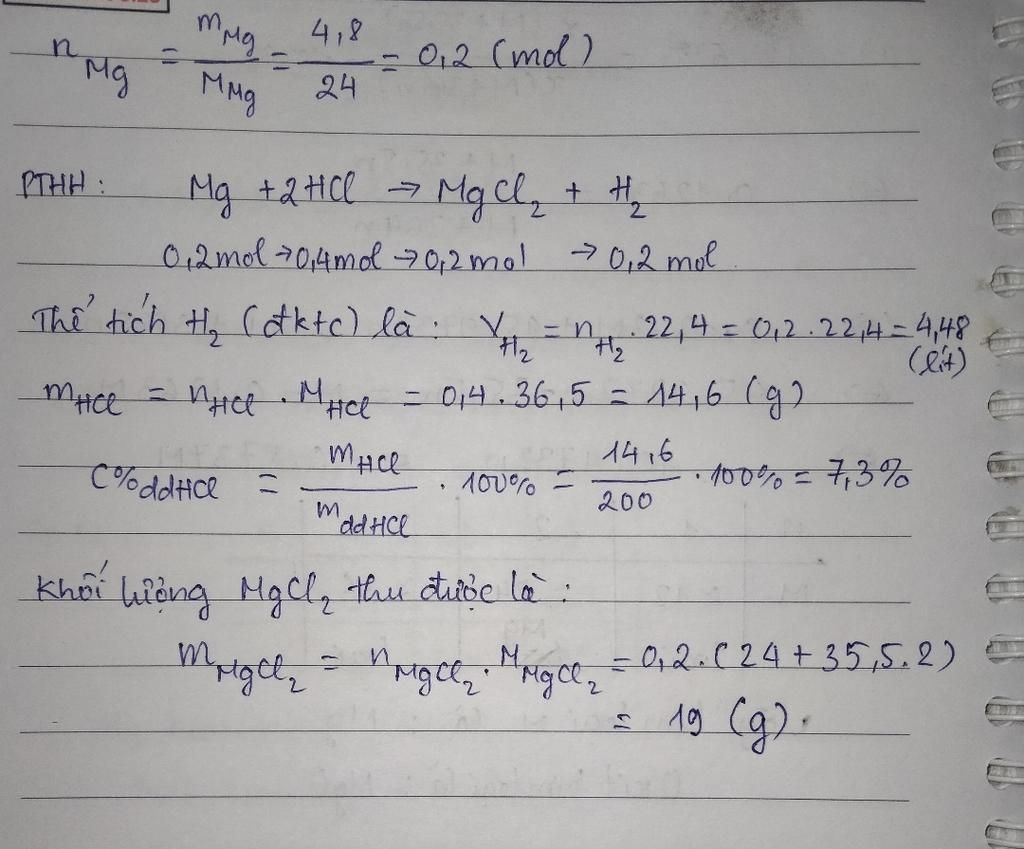 n_Mg = m_Mg / M_Mg = 4,8 / 24 = 0,2 (mol)
PTHH: Mg + 2HCl → MgCl₂ + H₂
0,2mol → 0,4mol → 0,2mol → 0,2 mol
Thể tích H₂ (đktc) là: V_H₂ = n_H₂ . 22,4 = 0,2 . 22,4 = 4,48 (lít)
m_HCl = n_HCl . M_HCl = 0,4 . 36,5 = 14,6 (g)
C%_ddHCl = m_HCl / m_ddHCl . 100% = 14,6 / 200 . 100% = 7,3%
Khối lượng MgCl₂ thu được là:
m_MgCl₂ = n_MgCl₂ . M_MgCl₂ = 0,2.(24 + 35,5.2)
= 19 (g).